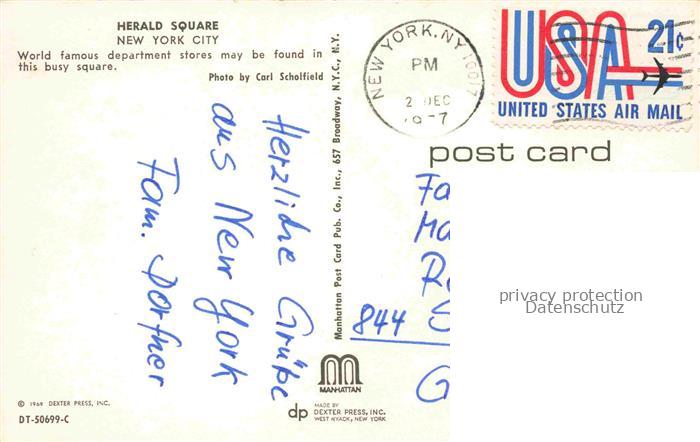 HERALD SQUARE
NEW YORK CITY
World famous department stores may be found in
this busy square.
Photo by Carl Scholfield
Herzliche Grüße
aus New York
Fam. Dorfner
© 1969 DEXTER PRESS, INC.
DT-50699-C
Manhattan Post Card Pub. Co., Inc., 657 Broadway, N.Y.C., N.Y.
MANHATTAN
dp
MADE BY
DEXTER PRESS, INC.
WEST NYACK, NEW YORK
NEW YORK, N.Y.
PM
2 DEC
USA 21¢
UNITED STATES AIR MAIL
post card
Fa
Ma
844 S
G
privacy protection
Datenschutz